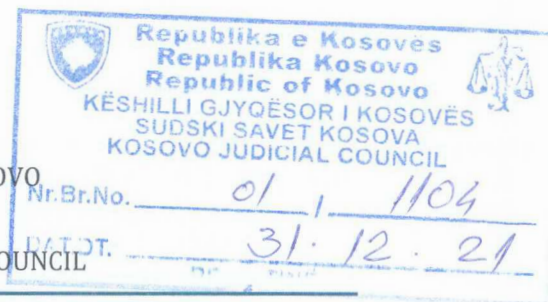 Republika e Kosovës
Republika Kosovo
Republic of Kosovo
KËSHILLI GJYQËSOR I KOSOVËS
SUDSKI SAVET KOSOVA
KOSOVO JUDICIAL COUNCIL
OVO
Nr.Br.No. 01 / 1104
DT. 31. 12. 21
OUNCIL